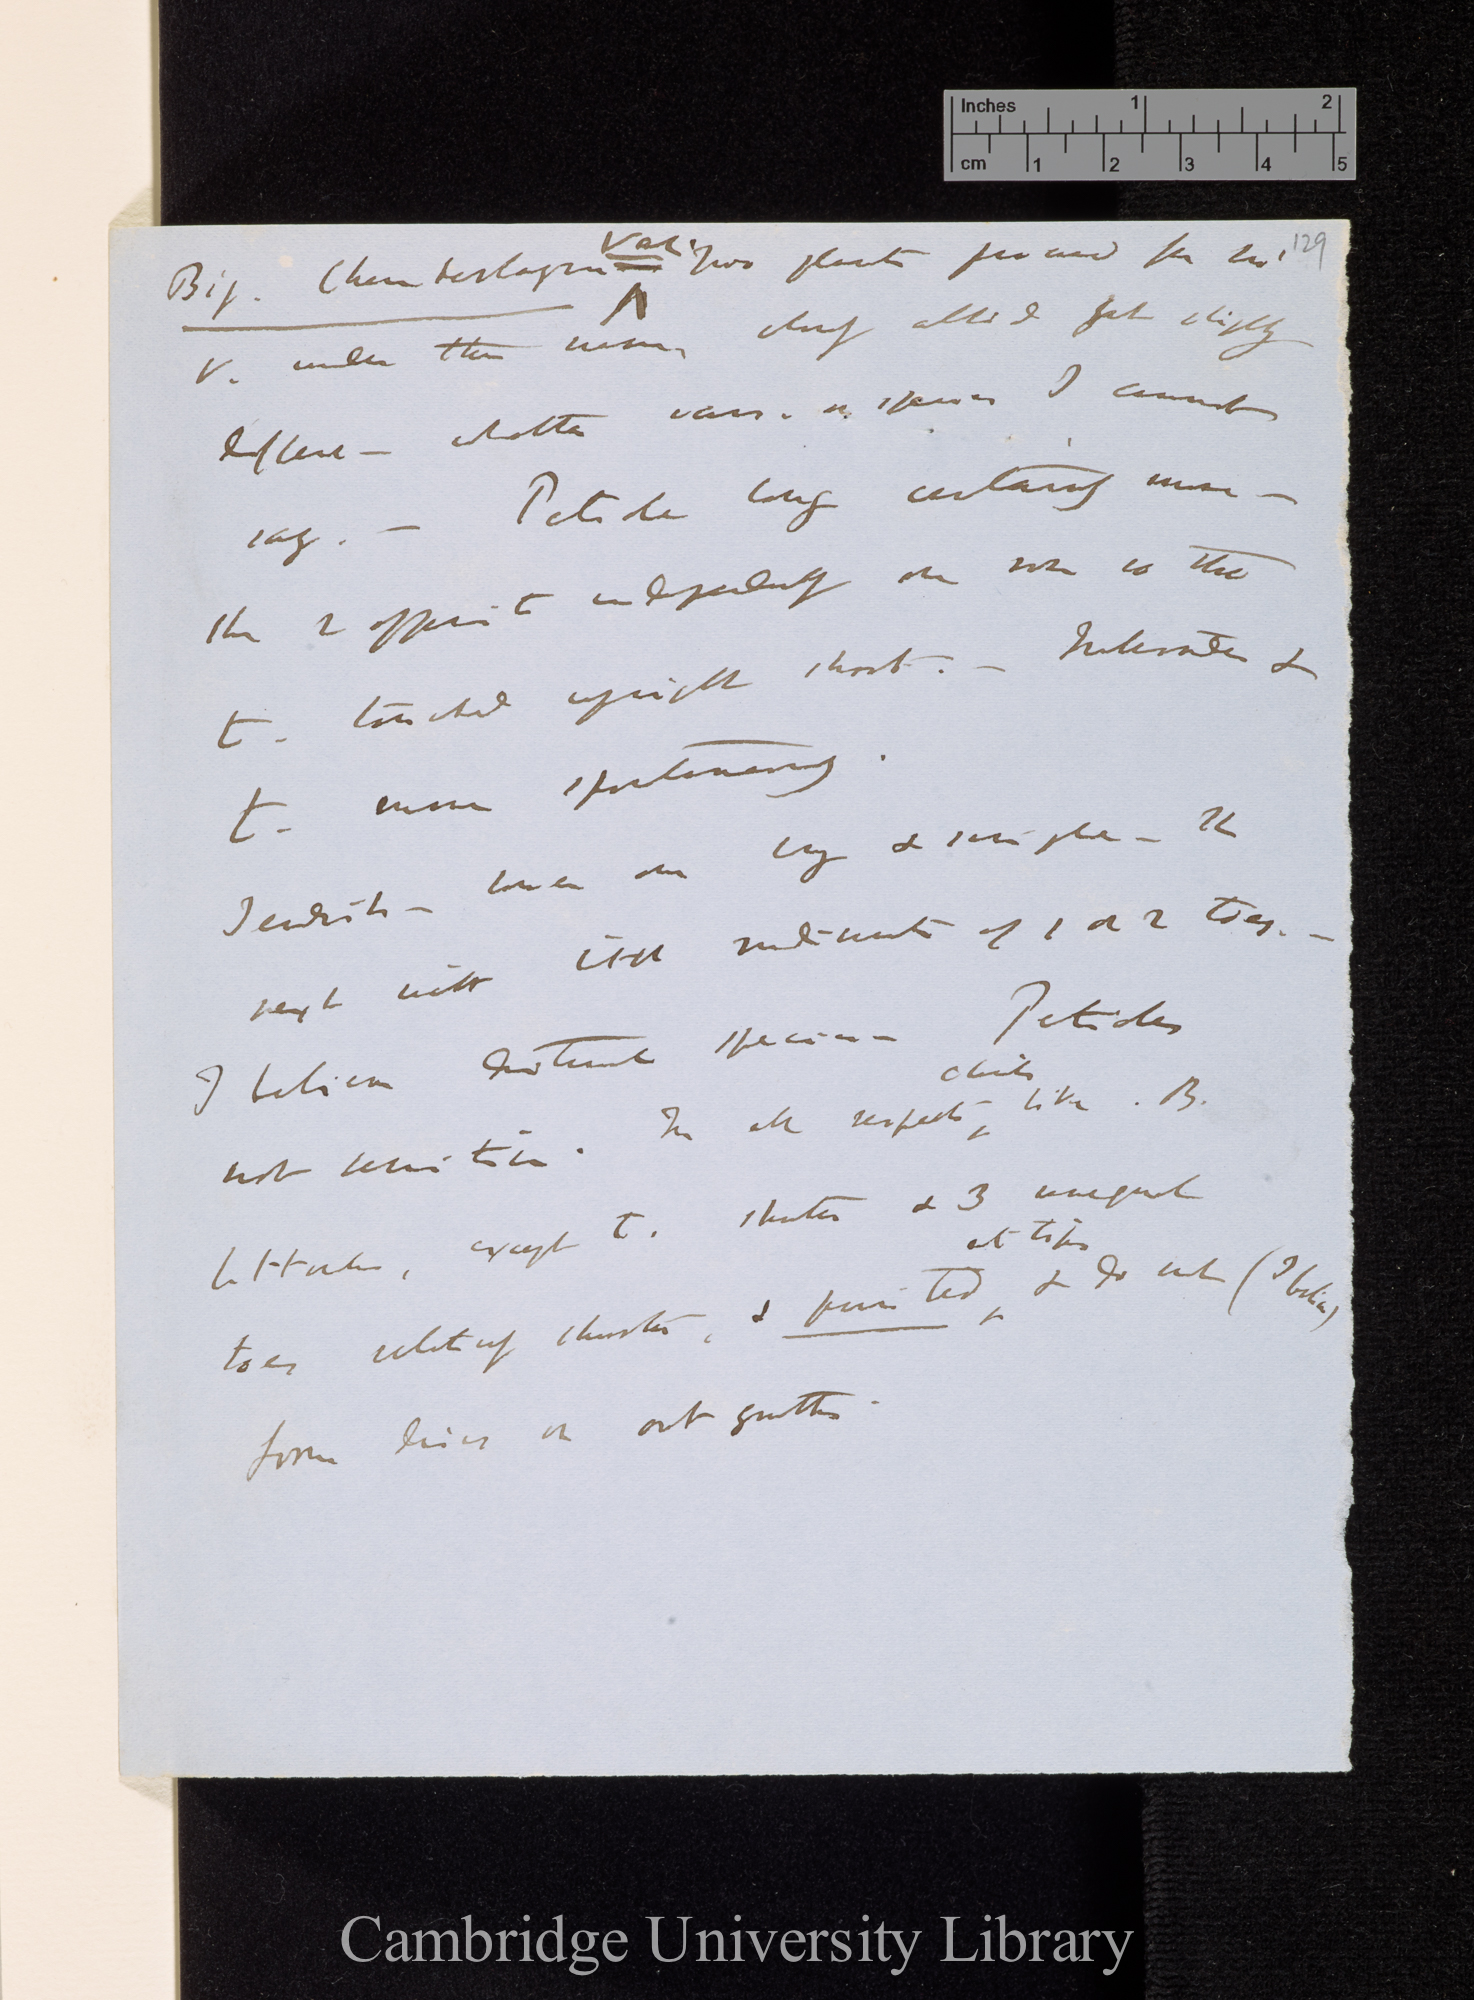 Inches 1 2
cm 1 2 3 4 5
129
Big. Chamberlayni Var. Two plants procured for
V. under this name, closely allied but slightly
different — whether vars. or species I cannot
say. — Petiole long certainly move —
the 2 opposite independently one rose to the
T. touched upright shoot. — Internodes &
T. move spontaneously.
Tendrils — lower one long & simple — The
next with little rudiments of 1 or 2 toes. —
I believe distinct species — Petioles
not sensitive. In all respects, chiefly like B.
littoralis, except T. shorter & 3 unequal
toes relatively shorter, & pointed at tips, & do not (I believe)
form discs or out growths.
Cambridge University Library